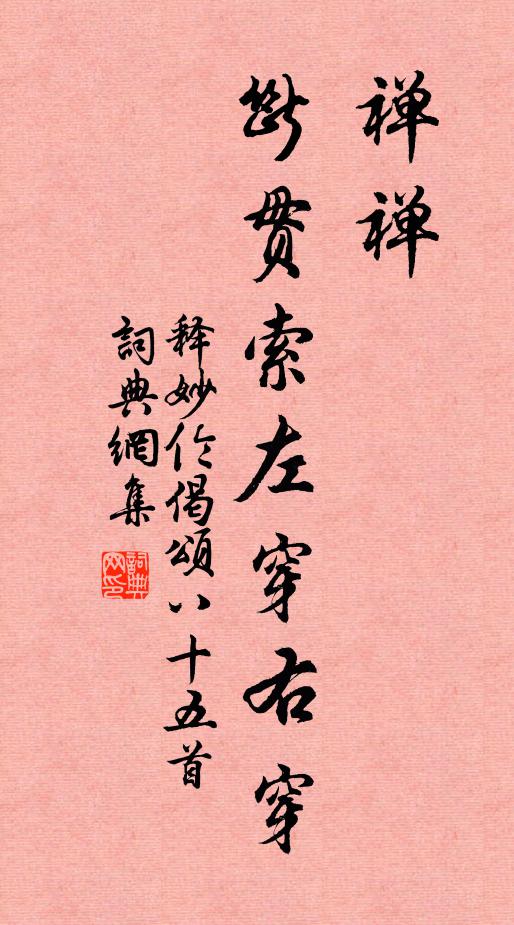 禅禅
断贯索左穿右穿
释妙伦偈頌八十五首
詞典網集
詞典网印